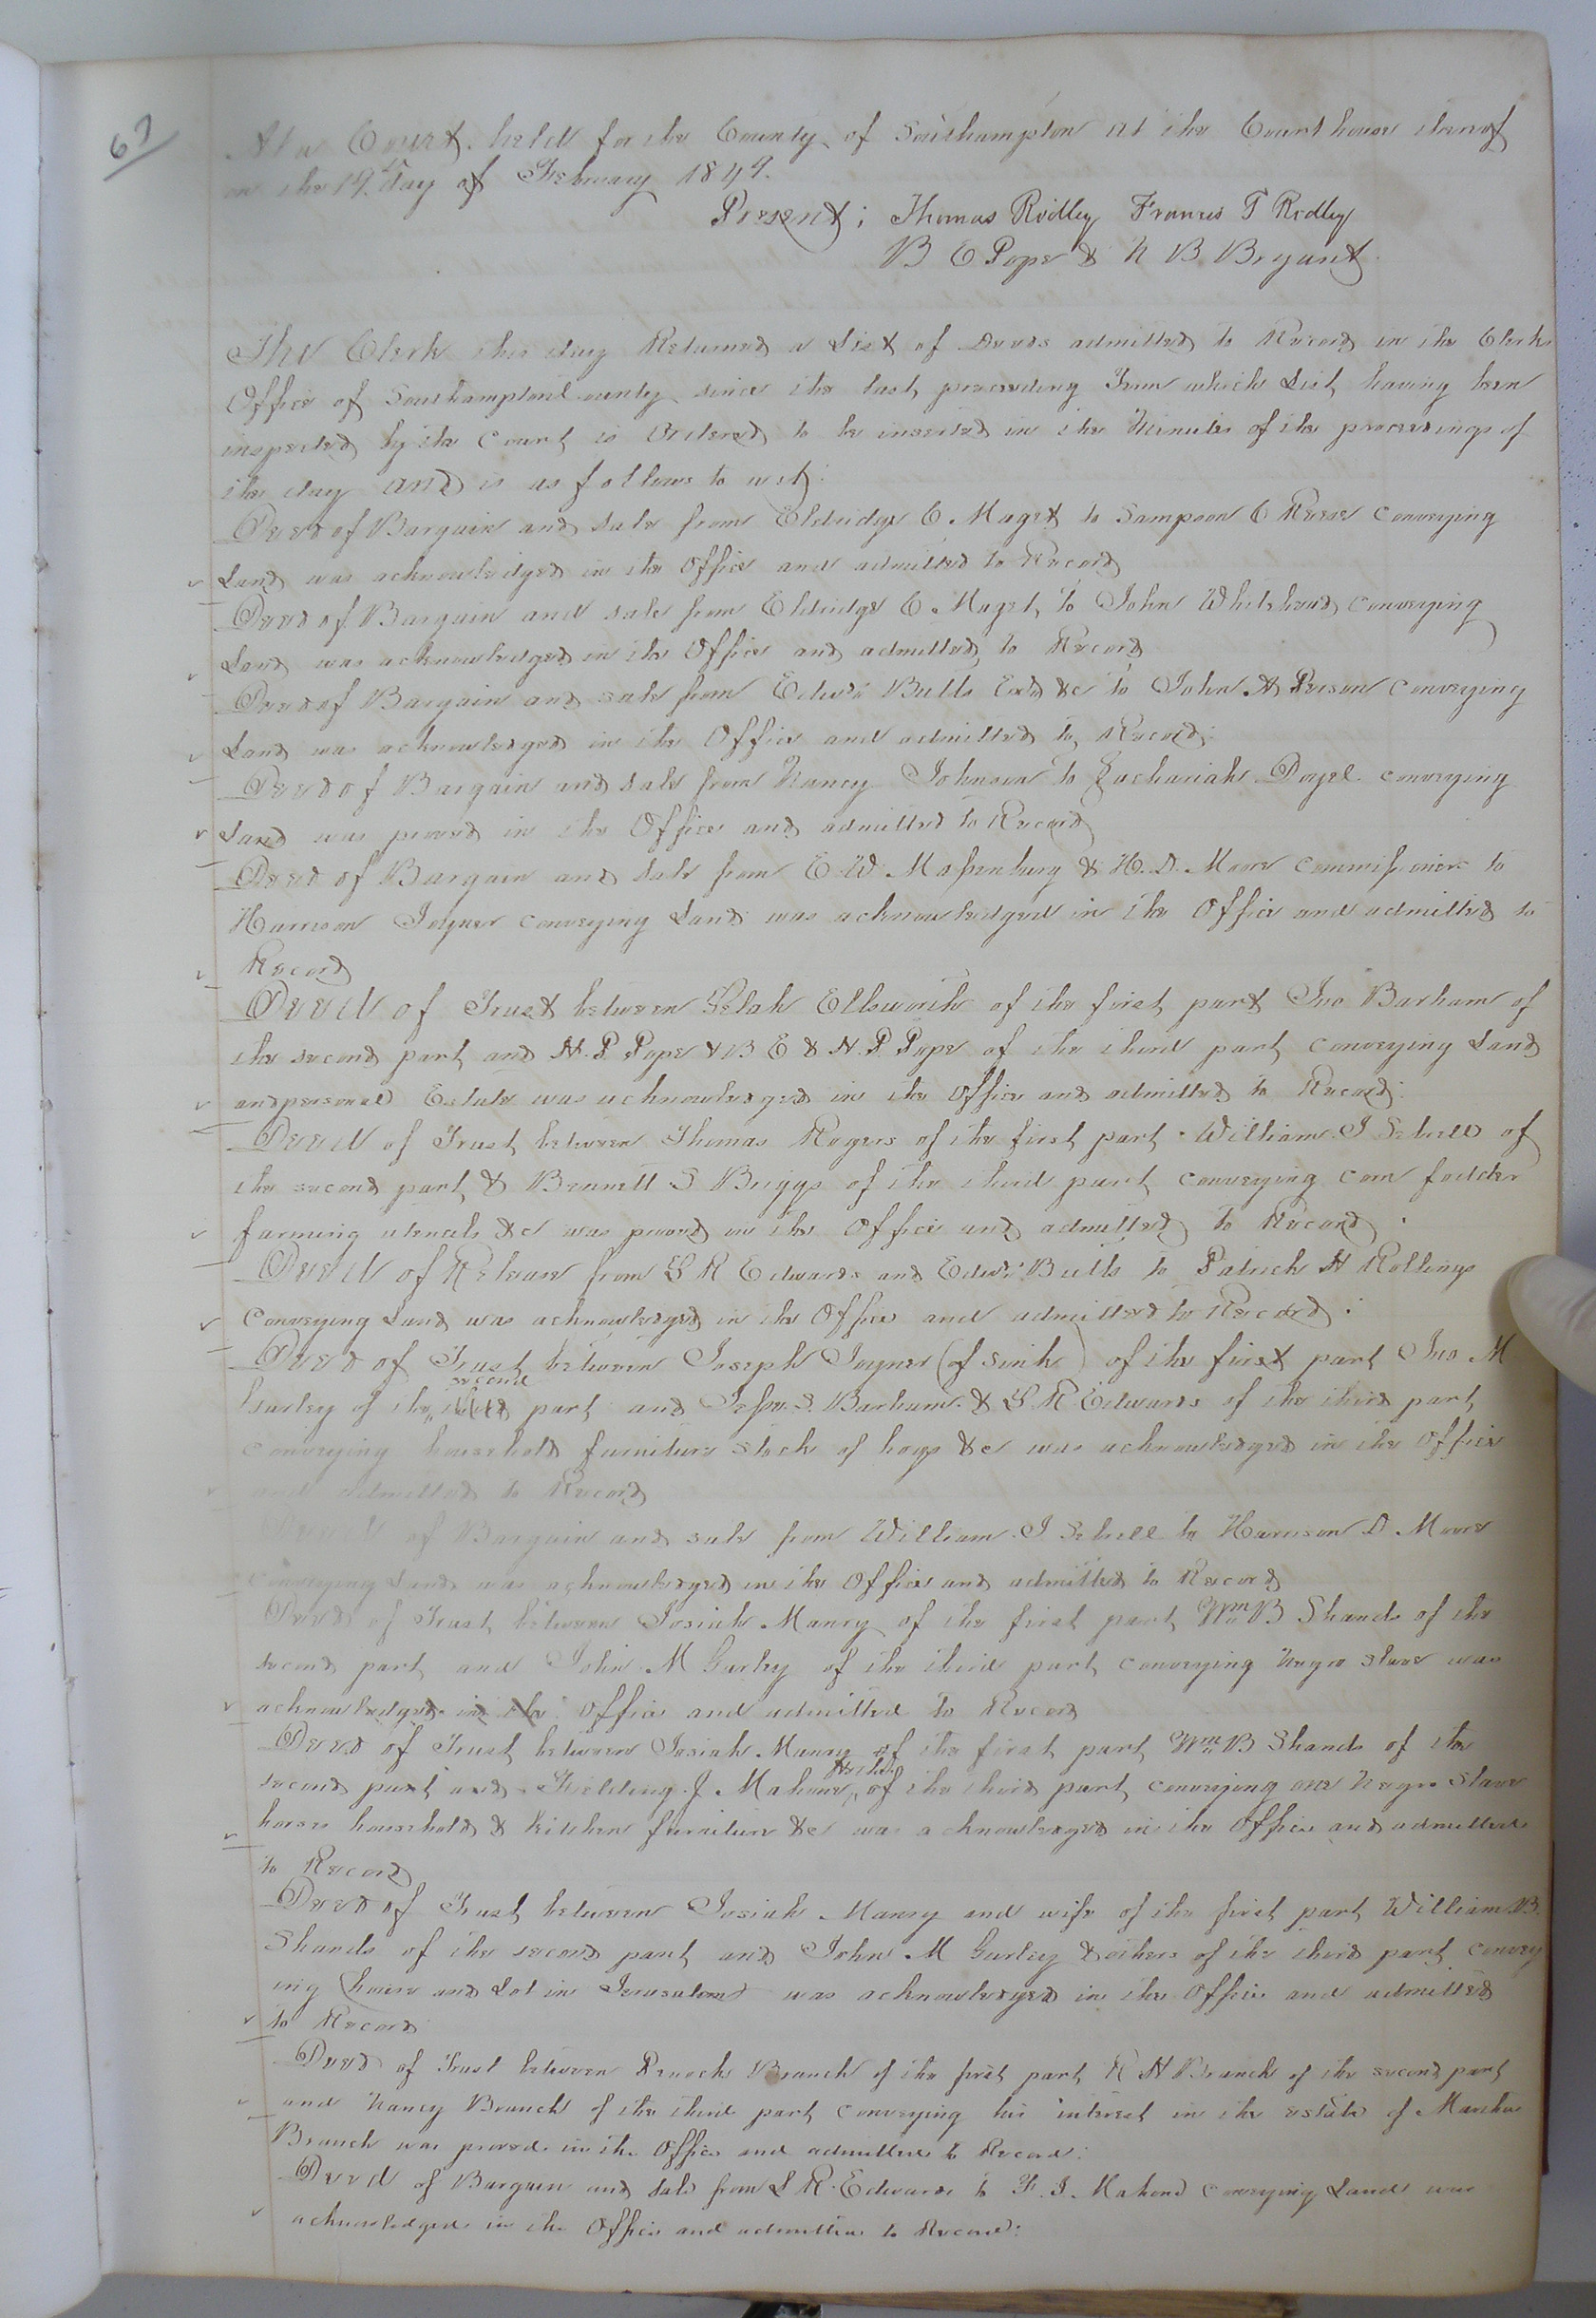 67
At a Court held for the County of Southampton at the Court house thereof
on the 19th day of February 1849.
Present; Thomas Ridley Francis T Ridley
B C Pope & N B Bryant.
The Clerk this day Returned a List of Deeds admitted to Record in the Clerks
Office of Southampton County since the last preceeding Term which List having been
inspected by the Court is Ordered to be inserted in the Minutes of the proceedings of
the day and is as follows to wit:
Deed of Bargain and Sale from Eldridge C. Maget to Sampson C Reese Conveying
Land was acknowledged in the Office and admitted to Record
Deed of Bargain and sale from Eldridge C. Maget to John Whitehead conveying
Land was acknowledged in the Office and admitted to Record
Deed of Bargain and sale from Edwd Butts &c to John A Person conveying
Land was acknowledged in the Office and admitted to Record:
Deed of Bargain and Sale from Nancy Johnson to Zachariah Doyel conveying
Land was proved in the Office and admitted to Record
Deed of Bargain and Sale from E W Massenburg & H. D. Moore Commissioners to
Harrison Joyner conveying Land was acknowledged in the Office and admitted to
Record
Deed of Trust between Selah Ellsworth of the first part Jno Barham of
the second part and H. P. Pope & B E & H. P. Pope of the third part conveying Land
and personal Estate was acknowledged in the Office and admitted to Record:
Deed of Trust between Thomas Rogers of the first part William J Sebrell of
the second part & Bennett S Briggs of the third part conveying corn fodder
farming utencils &c was proved in the Office and admitted to Record.
Deed of Release from L R Edwards and Edwd Butts to Patrick H Rollings
conveying Land was acknowledged in the Office and admitted to Record:
Deed of Trust between Joseph Joyner (of Smith) of the first part Jno M
Gurley of the second part and Jesse S. Barham & L R Edwards of the third part
conveying household furniture stock of hogs &c was acknowledged in the Office
and admitted to Record
Deed of Bargain and sale from William J. Sebrell to Harrison D. Moore
conveying Land was acknowledged in the Office and admitted to Record
Deed of Trust between Josiah Manry of the first part Wm B Shands of the
second part and John M Gurley of the third part conveying Negro Slave was
acknowledged in the Office and admitted to Record
Deed of Trust between Josiah Manry of the first part Wm B Shands of the
second part and Fielding J. Mahone of the third part conveying one Negro Slave
horses household & kitchen furniture &c was acknowledged in the Office and admitted
to Record
Deed of Trust between Josiah Manry and wife of the first part William B.
Shands of the second part and John M Gurley & others of the third part convey
ing house and Lot in Jerusalem was acknowledged in the Office and admitted
to Record
Deed of Trust between Branch of the first part R H Branch of the second part
and Nancy Branch of the third part conveying his interest in the estate of Martha
Branch was proved in the Office and admitted to Record:
Deed of Bargain and Sale from L R. Edwards to F. J. Mahone conveying Land was
acknowledged in the Office and admitted to Record: